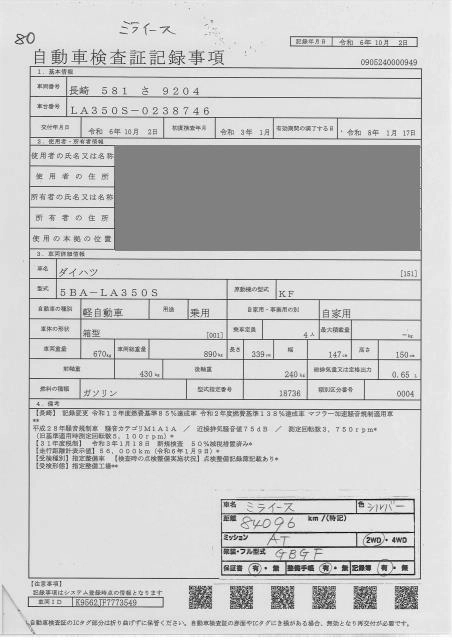 80
ミライース
記録年月日 令和 6年10月 2日
自動車検査証記録事項
0905240000949
1. 基本情報
車両番号 長崎 581 さ 9204
車台番号 LA350S-0238746
交付年月日 令和 6年10月 2日 初度検査年月 令和 3年 1月 有効期間の満了する日 令和 8年 1月 17日
2. 使用者・所有者情報
使用者の氏名又は名称
使用者の住所
所有者の氏名又は名称
所有者の住所
使用の本拠の位置
3. 車両詳細情報
車名 ダイハツ [151]
型式 5BA-LA350S 原動機の型式 KF
自動車の種別 軽自動車 用途 乗用 自家用・事業用の別 自家用
車体の形状 箱型 [001] 乗車定員 4人 最大積載量 -kg
車両重量 670kg 車両総重量 890kg 長さ 339cm 幅 147cm 高さ 150cm
前軸重 430kg 後軸重 240kg 総排気量又は定格出力 0.65L
燃料の種類 ガソリン 型式指定番号 18736 類別区分番号 0004
4. 備考
[長崎] 記録変更 令和12年度燃費基準85%達成車 令和2年度燃費基準138%達成車 マフラー加速騒音規制適用車
**
平成28年騒音規制車 騒音カテゴリM1A1A / 近接排気騒音値75dB / 測定回転数3,750rpm*
(旧基準適用時測定回転数5,100rpm)*
[31年度税制] 令和3年1月18日 新規検査 50%減税措置済み*
[走行距離計表示値]56,000km(令和6年1月9日)*
[受検種別]指定整備車 [検査時の点検整備実施状況]点検整備記録簿記載あり*
[受検形態]指定整備工場**
車名 ミライース 色 シルバー
距離 84096 km/(特記)
ミッション AT 2WD・4WD
架装・フル型式 GBGF
保証書 有・無 整備手帳 有・無 記録簿 有・無
[注意事項]
記載事項はシステム登録時点の情報となります
車両ID K9562JF7773549
自動車検査証のICタグ部分は折り曲げずに保管ください。自動車検査証の券面やICタグにき損がある場合、無効となり再交付が必要です。